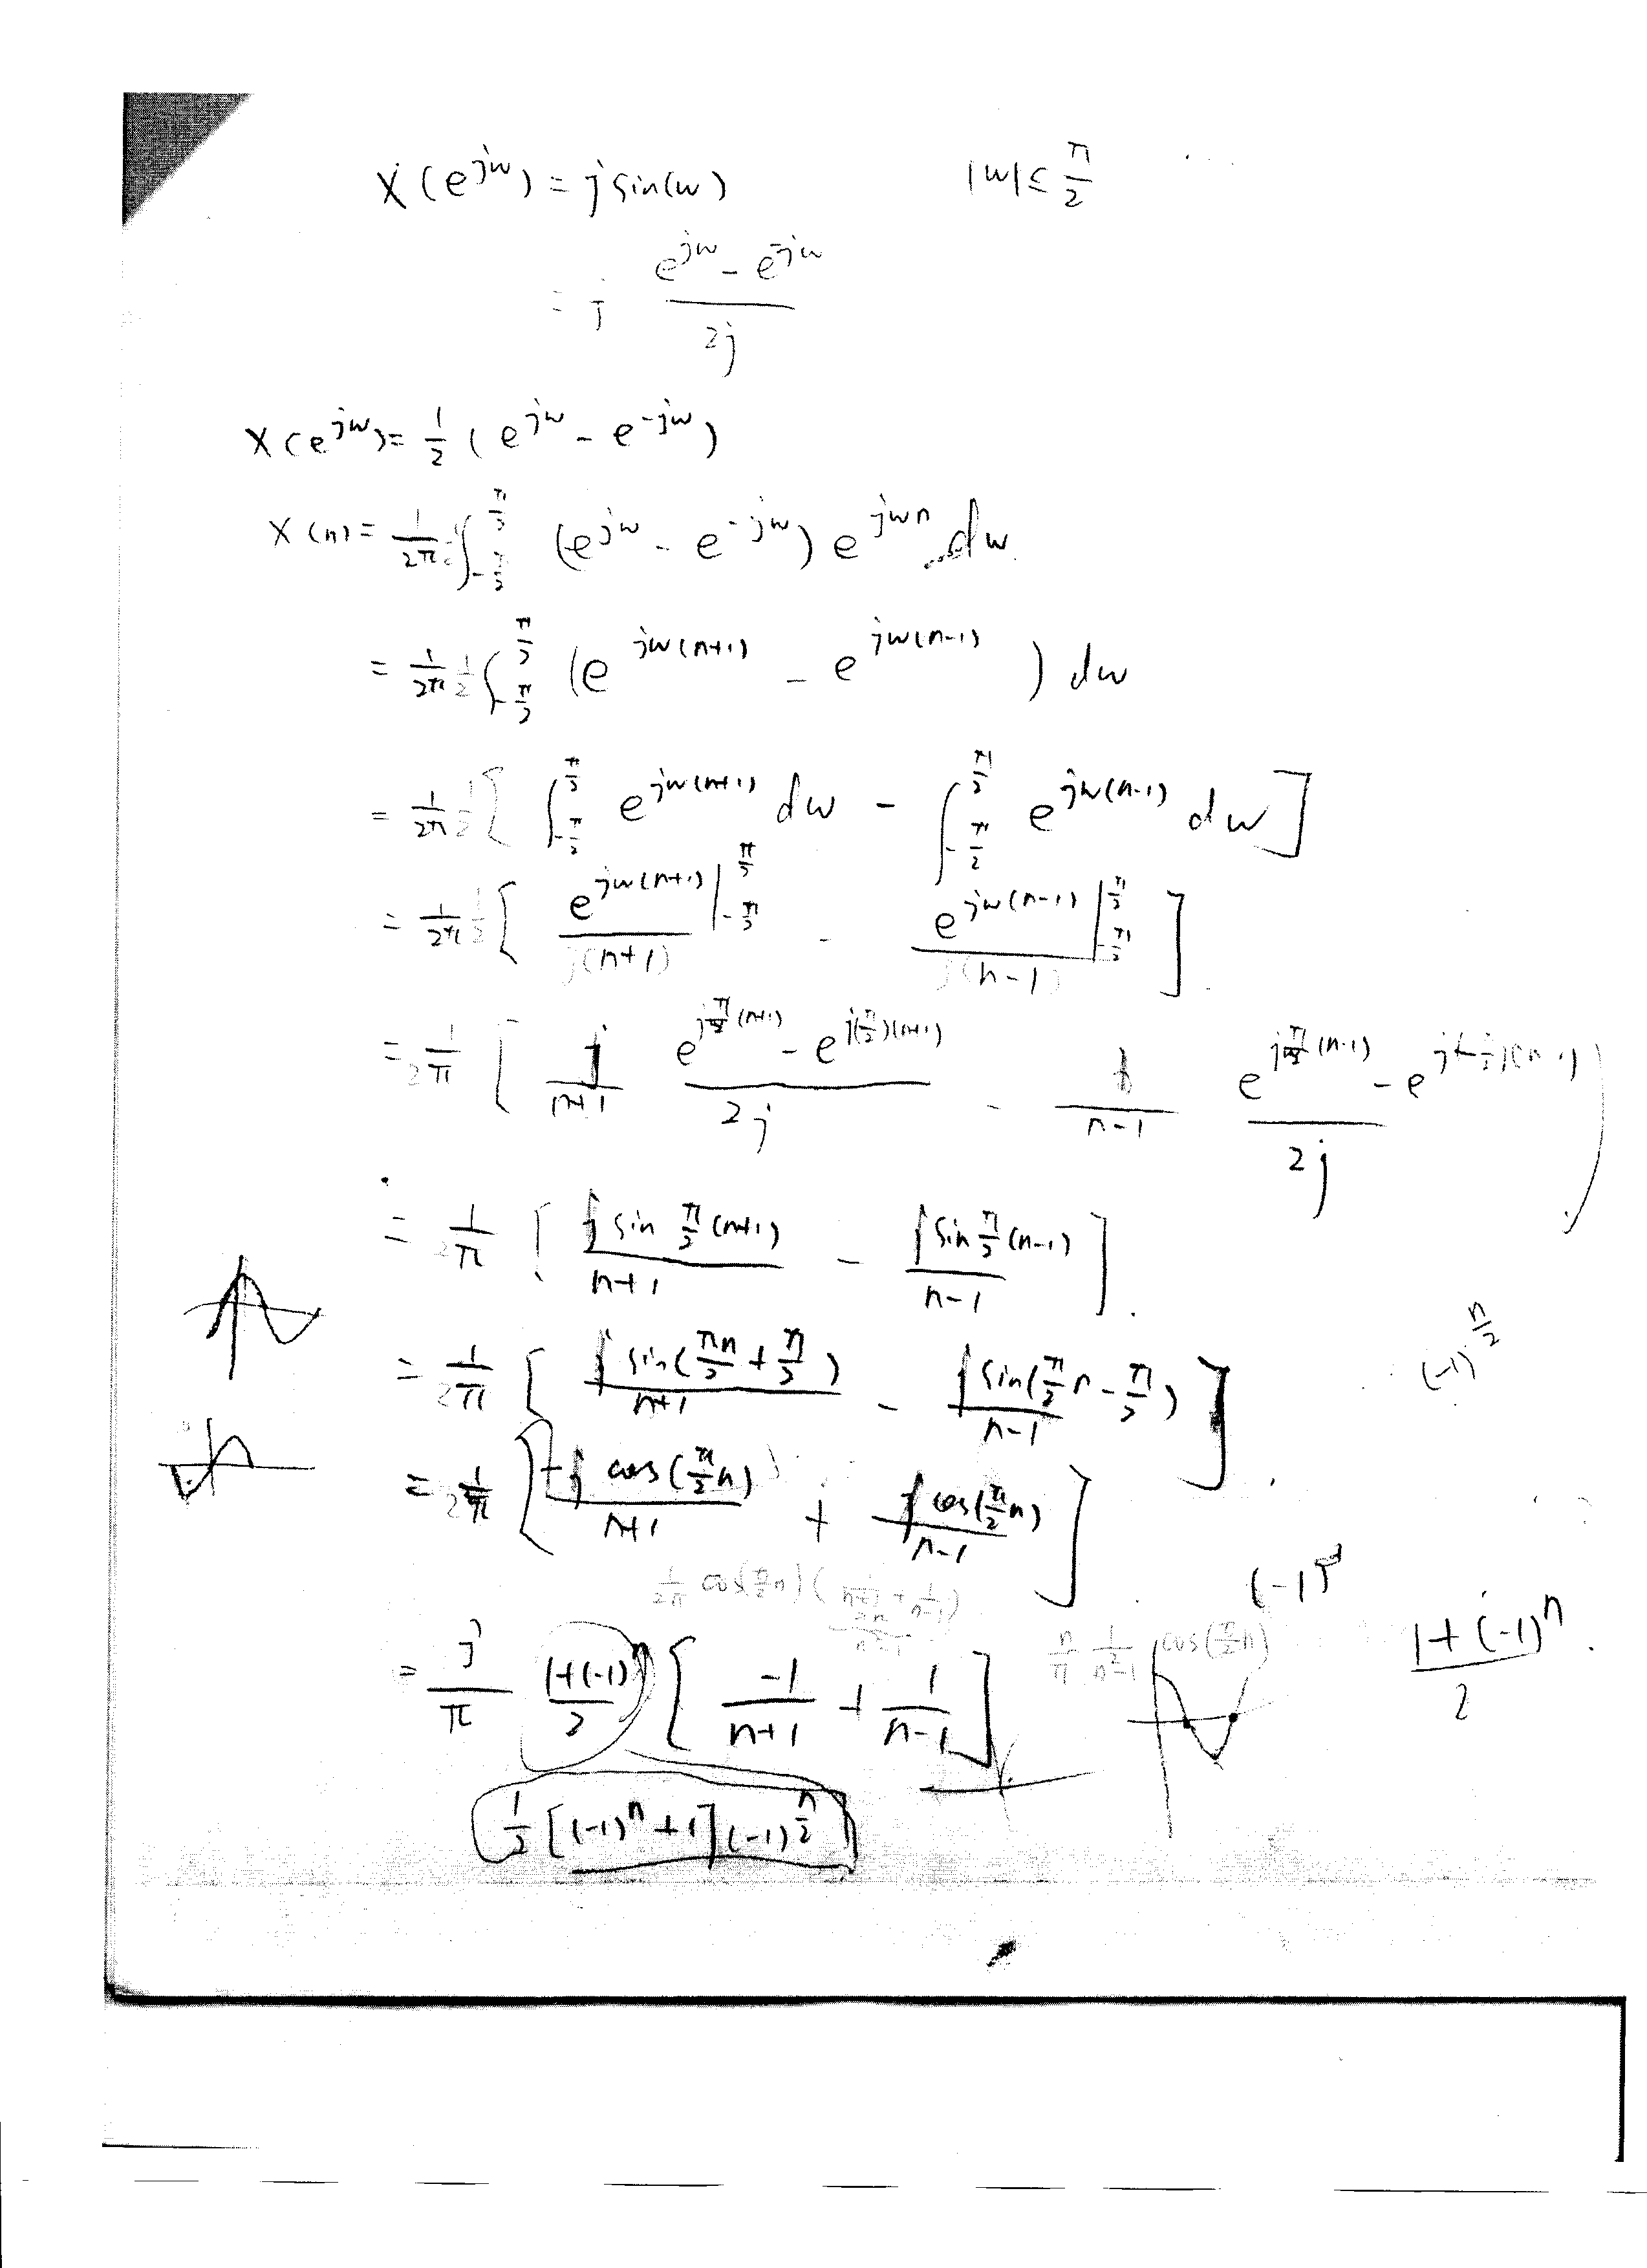 X(e^{jw}) = j sin(w)    |w| ≤ π/2
= j (e^{jw} - e^{-jw})/2j
X(e^{jw}) = 1/2 (e^{jw} - e^{-jw})
X(n) = 1/2π 1/2 ∫_{-π/2}^{π/2} (e^{jw} - e^{-jw}) e^{jwn} dw
= 1/2π 1/2 ∫_{-π/2}^{π/2} (e^{jw(n+1)} - e^{jw(n-1)}) dw
= 1/2π 1/2 [ ∫_{-π/2}^{π/2} e^{jw(n+1)} dw - ∫_{-π/2}^{π/2} e^{jw(n-1)} dw ]
= 1/2π 1/2 [ e^{jw(n+1)}/j(n+1) |_{-π/2}^{π/2} - e^{jw(n-1)}/j(n-1) |_{-π/2}^{π/2} ]
= 1/2π [ /(n+1) (e^{jπ/2(n+1)} - e^{j(π/2)(n+1)})/2j - /(n-1) (e^{jπ/2(n-1)} - e^{j(-π/2)(n-1)})/2j ]
= 1/2π [ j sin π/2(n+1)/(n+1) - j sin π/2(n-1)/(n-1) ]
= 1/2π [ j sin(πn/2 + π/2)/(n+1) - j sin(π/2 n - π/2)/(n-1) ]    (-1)^{n/2}
= 1/2π [ j cos(π/2 n)/(n+1) + j cos(π/2 n)/(n-1) ]
1/2π cos(π/2 n) ( 1/(n+1) + 1/(n-1) )    (-1)
2n/(n²-1)
= j/π (1+(-1)^n)/2 [ -1/(n+1) + 1/(n-1) ]    n/π 1/(n²-1) cos(π/2 n)    (1+(-1)^n)/2
1/2 [(-1)^n + 1] (-1)^{n/2}